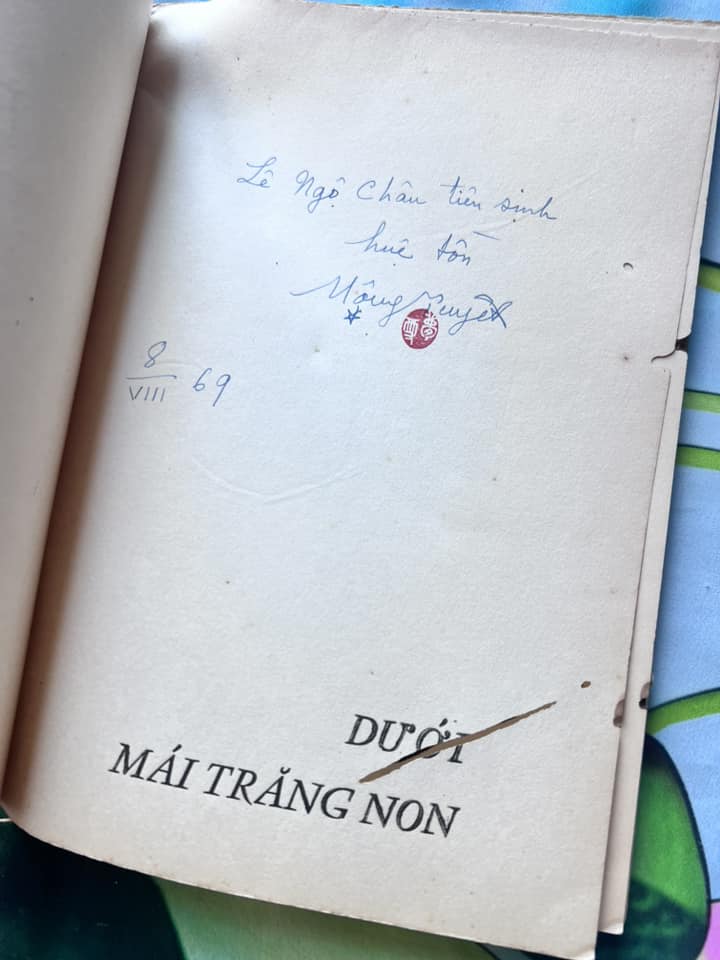 Lê Ngộ Châu tiên sinh
huệ tồn
Mộng Tuyết
8
VIII 69
DƯỚI
MÁI TRĂNG NON